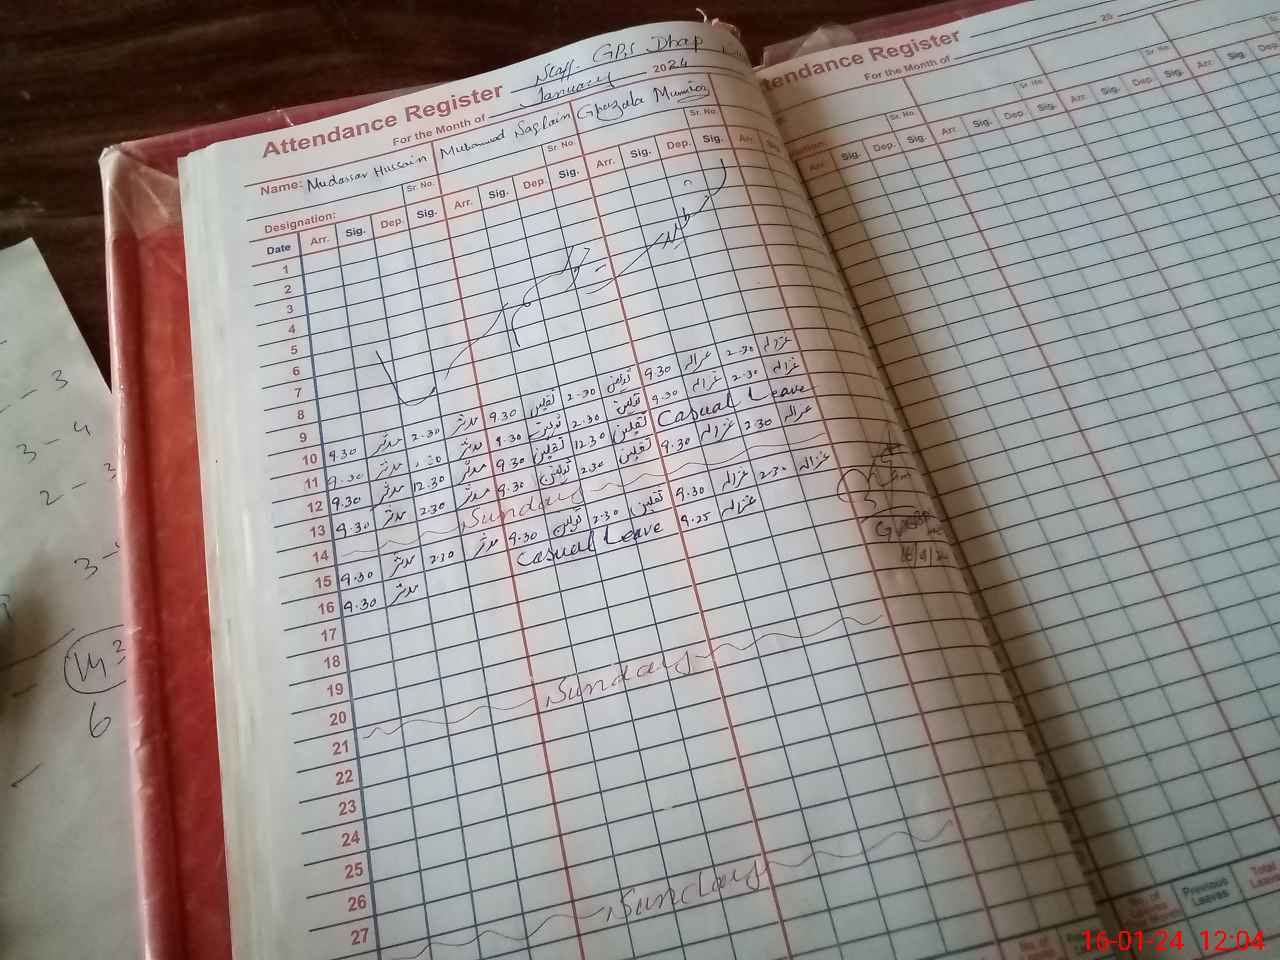 Attendance Register Staff. GPS Dhap
For the Month of January 2024
Name: Mudassar Hussain Muhammad Saqlain Ghazala Mumtaz
Sr. No. Sr. No. Sr. No.
Designation:
Date Arr. Sig. Dep. Sig. Arr. Sig. Dep. Sig. Arr. Sig. Dep. Sig. Arr. Sig.
1
2
3
4
5
6
7
8
9
10 9.30 مدثر 2.30 مدثر 9.30 ثقلین 2.30 ثقلین 9.30 غزالہ 2.30 غزالہ
11 9.30 مدثر 2.30 مدثر 9.30 ثقلین 2.30 ثقلین 9.30 غزالہ 2.30 غزالہ
12 9.30 مدثر 12.30 مدثر 9.30 ثقلین 12.30 ثقلین Casual Leave
13 9.30 مدثر 2.30 مدثر 9.30 ثقلین 2.30 ثقلین 9.30 غزالہ 2.30 غزالہ
14 Sunday
15 9.30 مدثر 2.30 مدثر 9.30 ثقلین 2.30 ثقلین 9.30 غزالہ 2.30 غزالہ
16 9.30 مدثر Casual Leave 9.25 غزالہ
17
18
19
20
21 Sunday
22
23
24
25
26
27
Sunday
tendance Register 20
For the Month of
Sr. No. Sr. No. Sr. No.
Arr. Sig. Dep. Sig. Arr. Sig. Dep. Sig. Arr. Sig. Dep.
No. of
Previous Leaves
Total
3-4
6
16-01-24 12:04